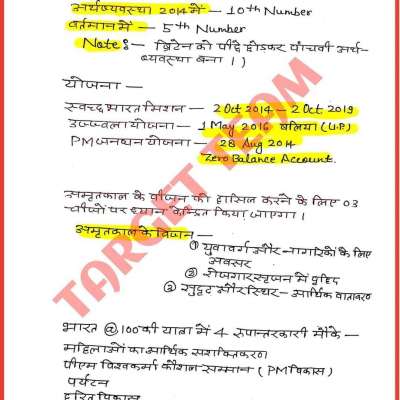 अर्थव्यवस्था 2014 में – 10th Number
वर्तमान में – 5th Number
Note :- ब्रिटेन को पीछे छोडकर पांचवी अर्थ-
व्यवस्था बना ।)
योजना –
स्वच्छ भारत मिशन – 2 Oct 2014 – 2 Oct 2019
उज्ज्वला योजना – 1 May 2016 बलिया (U.P)
PM जनधन योजना – 28 Aug 2014
Zero Balance Account.
अमृतकाल के वीजन को हासिल करने के लिए 03
चीजों पर ध्यान केन्द्रित किया जाएगा ।
अमृतकाल के विजन –
① युवावर्ग और नागरिकों के लिए
अवसर
② रोजगार सृजन में वृद्दि
③ सुदृढ और स्थिर – आर्थिक वातावरण
भारत @ 100 की यात्रा में 4 रुपान्तरकारी मौके –
महिलाओं का आर्थिक सशक्तिकरण
पीएम विश्वकर्मा कौशल सम्मान (PM विकास)
पर्यटन
हरित विकास
TARGET TEAM